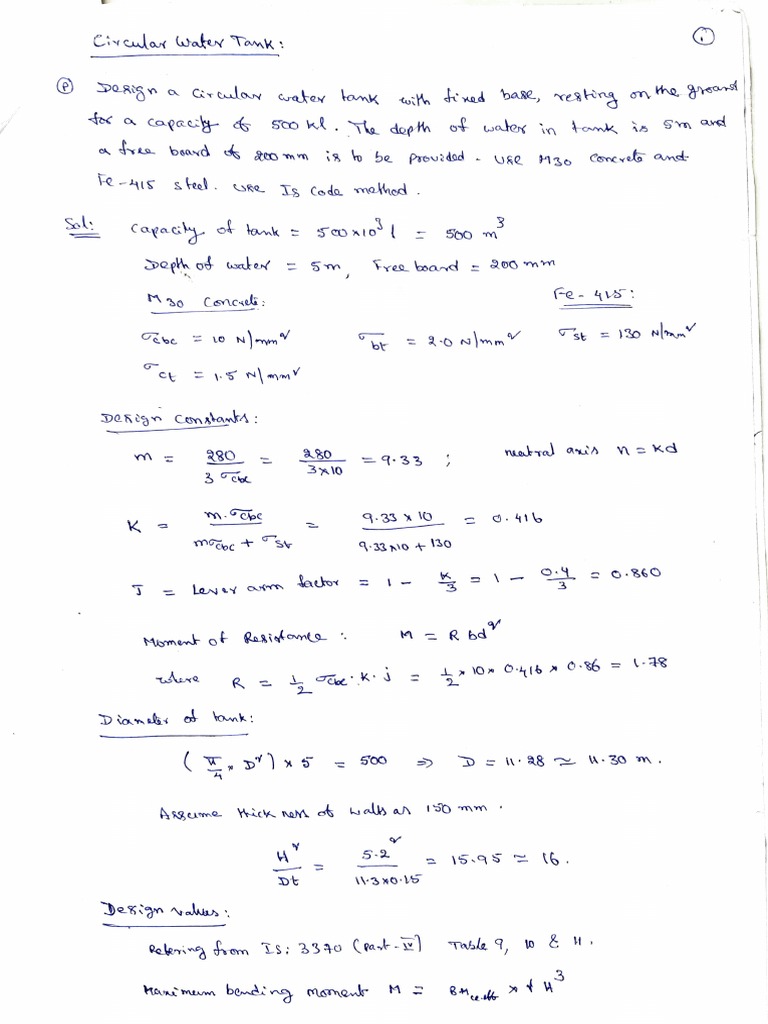 Circular Water Tank:
1
(P) Design a circular water tank with fixed base, resting on the ground
for a capacity of 500 kl. The depth of water in tank is 5m and
a free board of 200 mm is to be provided. Use M30 concrete and
Fe-415 steel. Use Is Code method.
Sol: Capacity of tank = 500×10³ l = 500 m³
Depth of water = 5m, Free board = 200 mm
M30 Concrete: Fe-415:
σcbc = 10 N/mm² σbt = 2.0 N/mm² σst = 130 N/mm²
σct = 1.5 N/mm²
Design Constants:
m = 280/3σcbc = 280/3×10 = 9.33 ; neutral axis n = kd
K = m.σcbc/mσcbc + σst = 9.33×10/9.33×10+130 = 0.416
J = Lever arm factor = 1 - K/3 = 1 - 0.4/3 = 0.860
Moment of Resistance: M = R bd²
where R = 1/2 σcbc.K.j = 1/2 × 10 × 0.416 × 0.86 = 1.78
Diameter of tank:
(π/4 × D²) × 5 = 500 ⇒ D = 11.28 ≃ 11.30 m.
Assume thickness of walls as 150 mm.
H²/Dt = 5.2²/11.3×0.15 = 15.95 ≃ 16.
Design values:
Refering from IS: 3370 (Part-IV) Table 9, 10 & 11.
Maximum bending moment M = BMco-eff × γ H³